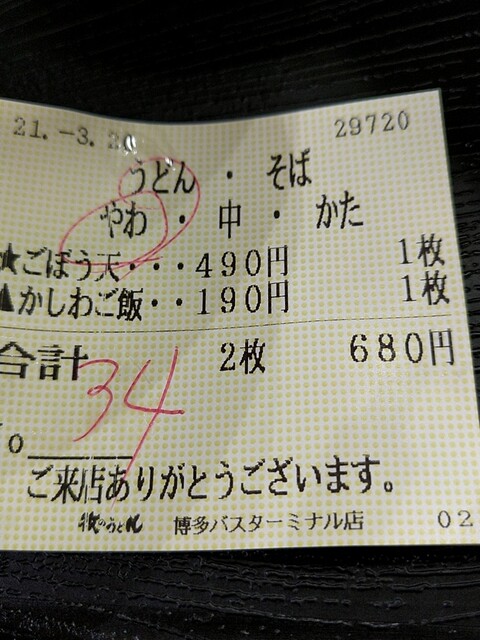 21.-3.20 29720
うどん ・ そば
やわ ・ 中 ・ かた
★ごぼう天・・・490円 1枚
▲かしわご飯・・190円 1枚
合計 2枚 680円
34
ご来店ありがとうございます。
牧のうどん 博多バスターミナル店 02